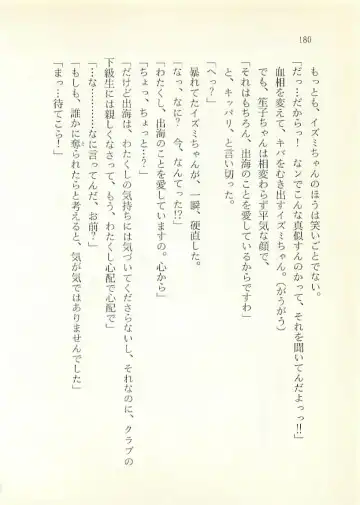 180
もっとも、イズミちゃんのほうは笑いごとでない。
「だっ…だからっ! なンでこんな真似すんのかって、それを聞いてんだよっっ!!」
血相を変えて、キバをむき出すイズミちゃん。(がうがう)
でも、笙子ちゃんは相変わらず平気な顔で、
「それはもちろん、出海のことを愛しているからですわ」
と、キッパリ、と言い切った。
「へっ?」
暴れてたイズミちゃんが、一瞬、硬直した。
「なっ、なに? 今、なんてった!?」
「わたくし、出海のことを愛していますの。心から」
「ちょっ、ちょっと…?」
「だけど出海は、わたくしの気持ちには気づいてくださらないし、それなのに、クラブの
下級生には親しくなさって、もう、わたくし心配で心配で」
「…な…………なに言ってんだ、お前?」
「もしも、誰かに奪られたらと考えると、気が気ではありませんでした」
「まっ…待てこら!」